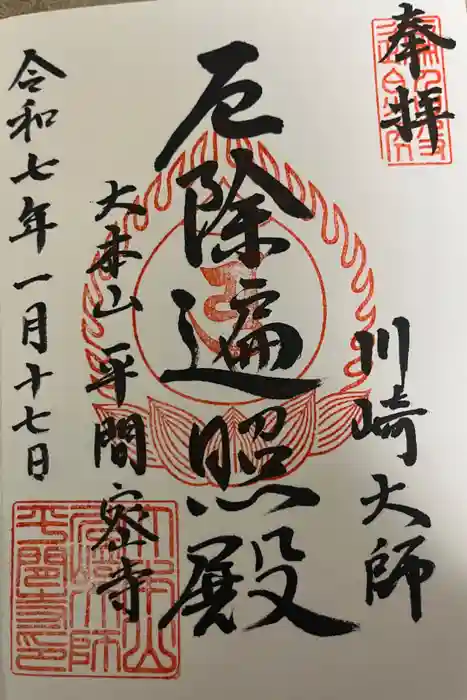 奉拝
川崎大師
厄除遍照殿
大本山平間寺
令和七年一月十七日